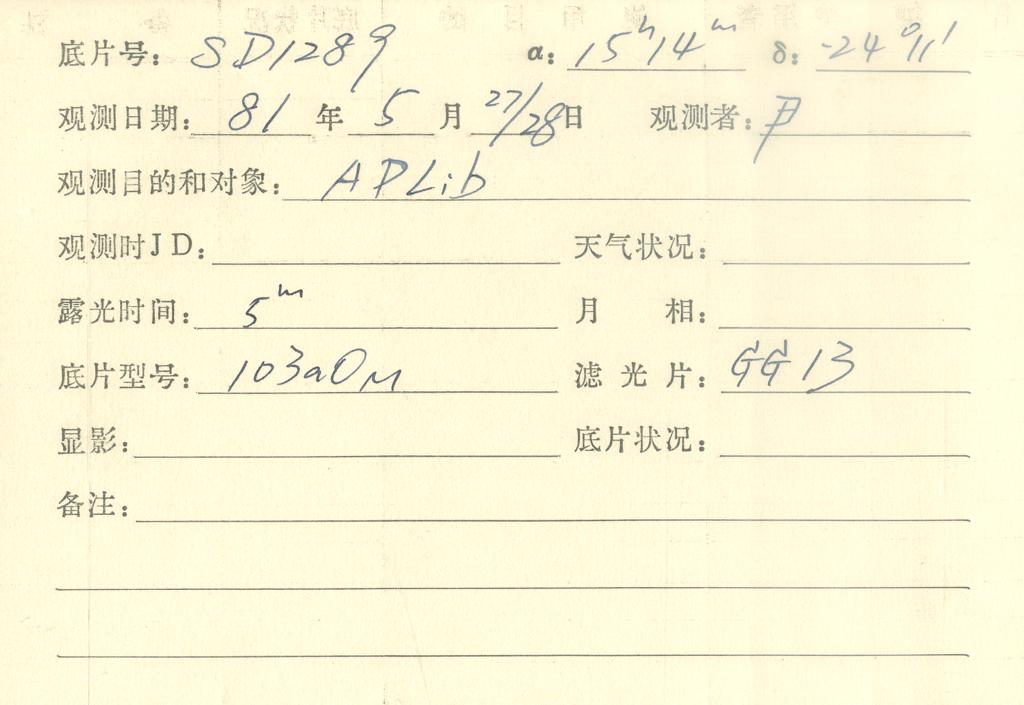 底片号: SD1289 α: 15ʰ14ᵐ δ: -24°11′
观测日期: 81 年 5 月 27/28日 观测者: 尹
观测目的和对象: AP Lib
观测时JD: 天气状况:
露光时间: 5ᵐ 月 相:
底片型号: 103aO м 滤光片: GG13
显影: 底片状况:
备注: